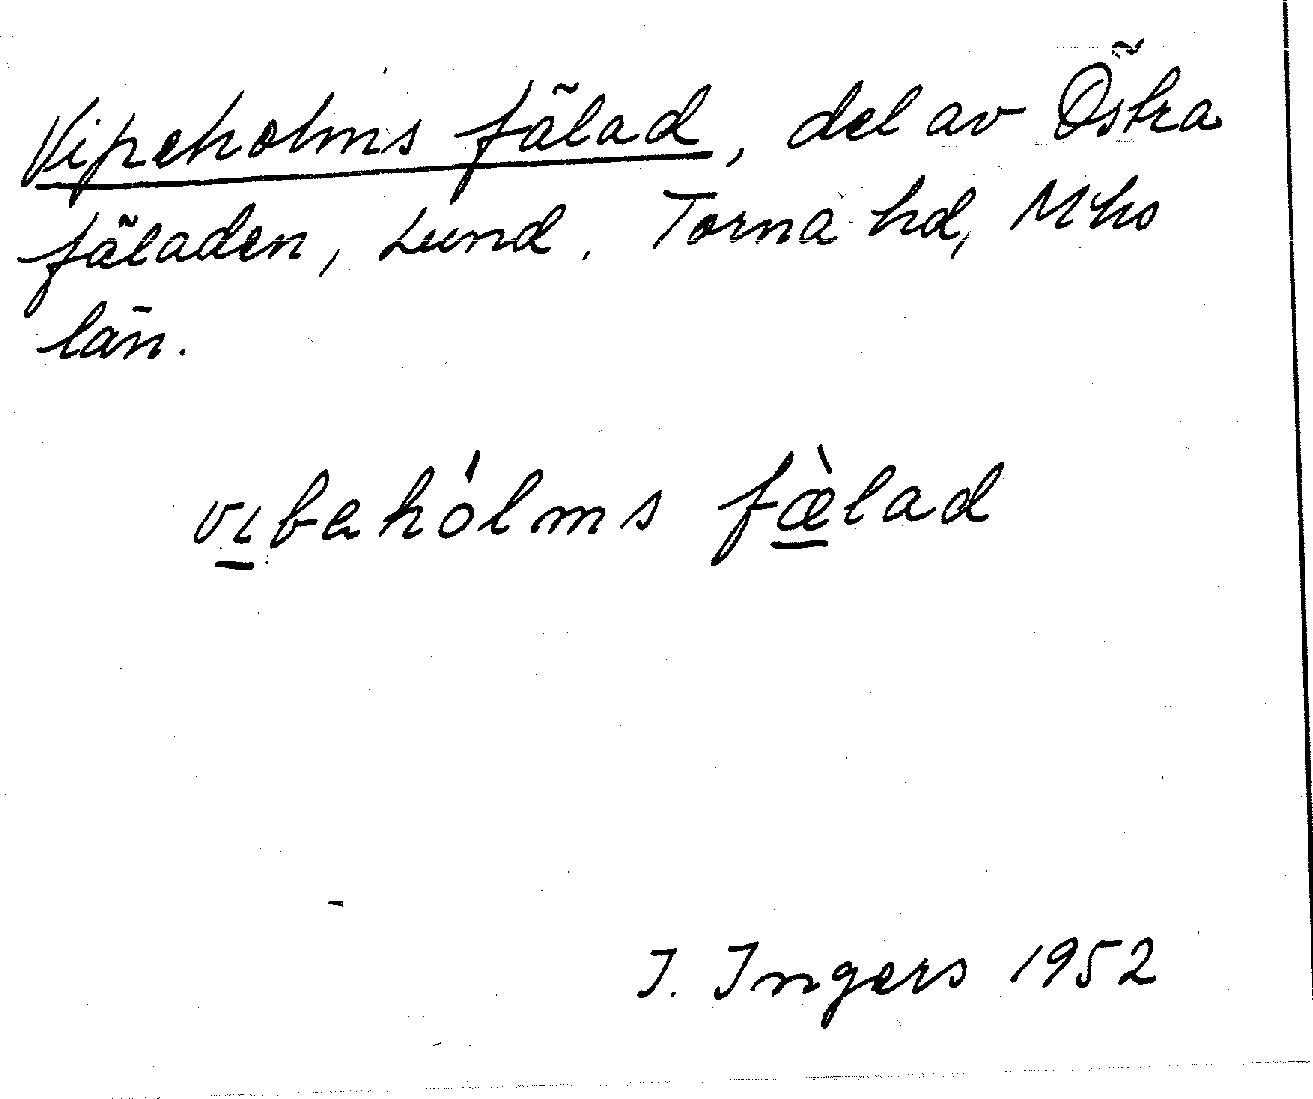 Vipeholms fälad, del av Östra
fäladen, Lund. Torna hd, Mhs
län.
vɩ̱bahólms fæ̱̀lad
I. Ingers 1952